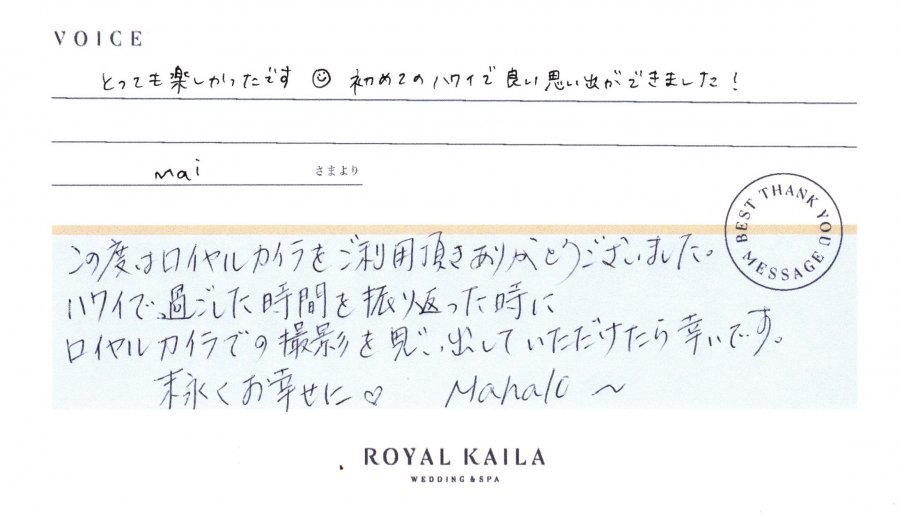 VOICE
とっても楽しかったです☺ 初めてのハワイで良い思い出ができました!
mai さまより
BEST THANK YOU MESSAGE
この度はロイヤルカイラをご利用頂きありがとうございました。
ハワイで過ごした時間を振り返った時に
ロイヤルカイラでの撮影を思い出していただけたら幸いです。
末永くお幸せに♡ Mahalo ~
ROYAL KAILA
WEDDING & SPA